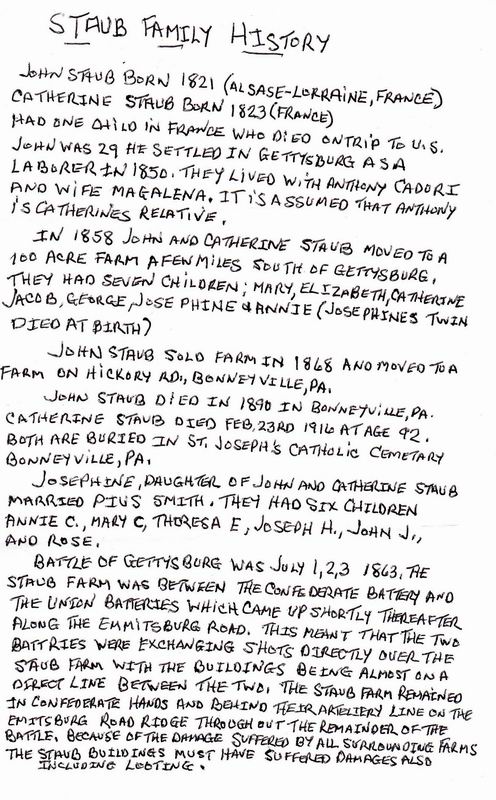 STAUB FAMILY HISTORY
JOHN STAUB BORN 1821 (ALSASE-LORRAINE, FRANCE)
CATHERINE STAUB BORN 1823 (FRANCE)
HAD ONE CHILD IN FRANCE WHO DIED ON TRIP TO U.S.
JOHN WAS 29 HE SETTLED IN GETTYSBURG AS A
LABORER IN 1850. THEY LIVED WITH ANTHONY CADORI
AND WIFE MAGALENA. IT IS ASSUMED THAT ANTHONY
IS CATHERINES RELATIVE.
IN 1858 JOHN AND CATHERINE STAUB MOVED TO A
100 ACRE FARM A FEW MILES SOUTH OF GETTYSBURG.
THEY HAD SEVEN CHILDREN; MARY, ELIZABETH, CATHERINE
JACOB, GEORGE, JOSEPHINE & ANNIE (JOSEPHINES TWIN
DIED AT BIRTH)
JOHN STAUB SOLD FARM IN 1868 AND MOVED TO A
FARM ON HICKORY RD., BONNEYVILLE, PA.
JOHN STAUB DIED IN 1890 IN BONNEYVILLE, PA.
CATHERINE STAUB DIED FEB. 23RD 1916 AT AGE 92.
BOTH ARE BURIED IN ST. JOSEPH'S CATHOLIC CEMETARY
BONNEYVILLE, PA.
JOSEPHINE, DAUGHTER OF JOHN AND CATHERINE STAUB
MARRIED PIUS SMITH. THEY HAD SIX CHILDREN
ANNIE C., MARY C, THORESA E, JOSEPH H., JOHN J.,
AND ROSE.
BATTLE OF GETTYSBURG WAS JULY 1,2,3 1863. THE
STAUB FARM WAS BETWEEN THE CONFEDERATE BATTERY AND
THE UNION BATTERIES WHICH CAME UP SHORTLY THEREAFTER
ALONG THE EMMITSBURG ROAD. THIS MEANT THAT THE TWO
BATTRIES WERE EXCHANGING SHOTS DIRECTLY OVER THE
STAUB FARM WITH THE BUILDINGS BEING ALMOST ON A
DIRECT LINE BETWEEN THE TWO. THE STAUB FARM REMAINED
IN CONFEDERATE HANDS AND BEHIND THEIR ARTELIERY LINE ON THE
EMITSBURG ROAD RIDGE THROUGH OUT THE REMAINDER OF THE
BATTLE. BECAUSE OF THE DAMAGE SUFFERED BY ALL SURROUNDING FARMS
THE STAUB BUILDINGS MUST HAVE SUFFERED DAMAGES ALSO
INCLUDING LOOTING.